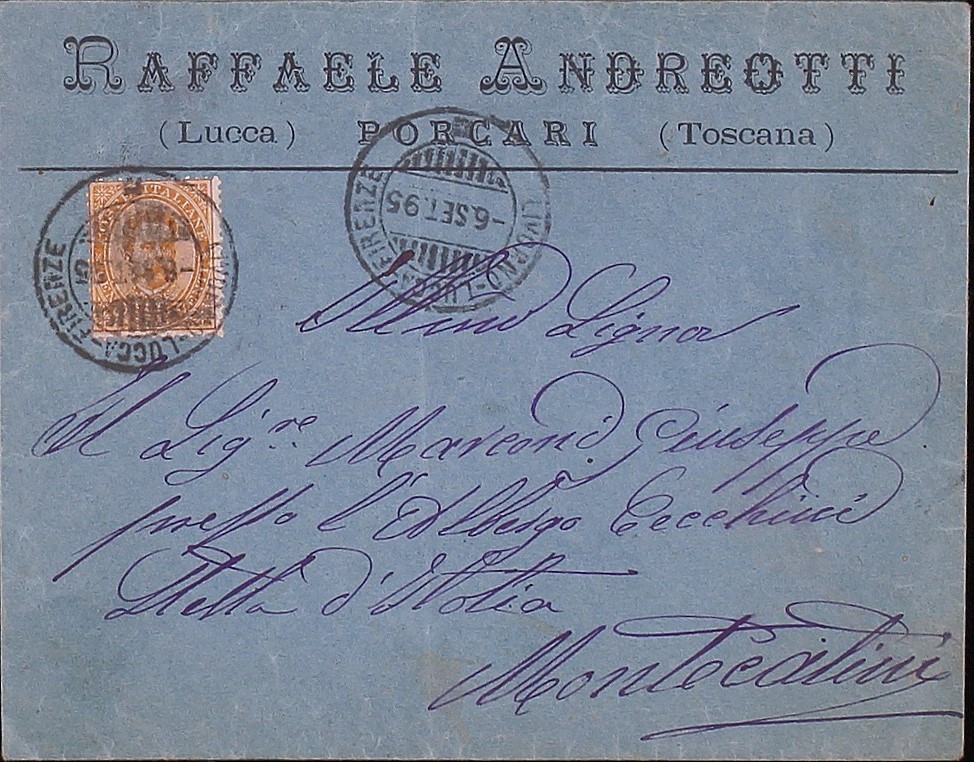 RAFFAELE ANDREOTTI
(Lucca) PORCARI (Toscana)
LIVORNO-LUCCA-FIRENZE
-6.SET.95
POSTE ITALIANE
-LUCCA-FIRENZE
Illmo Signor
Il Sigre Marconi Giuseppe
presso l'Albergo Cecchini
Stella d'Italia
Montecatini